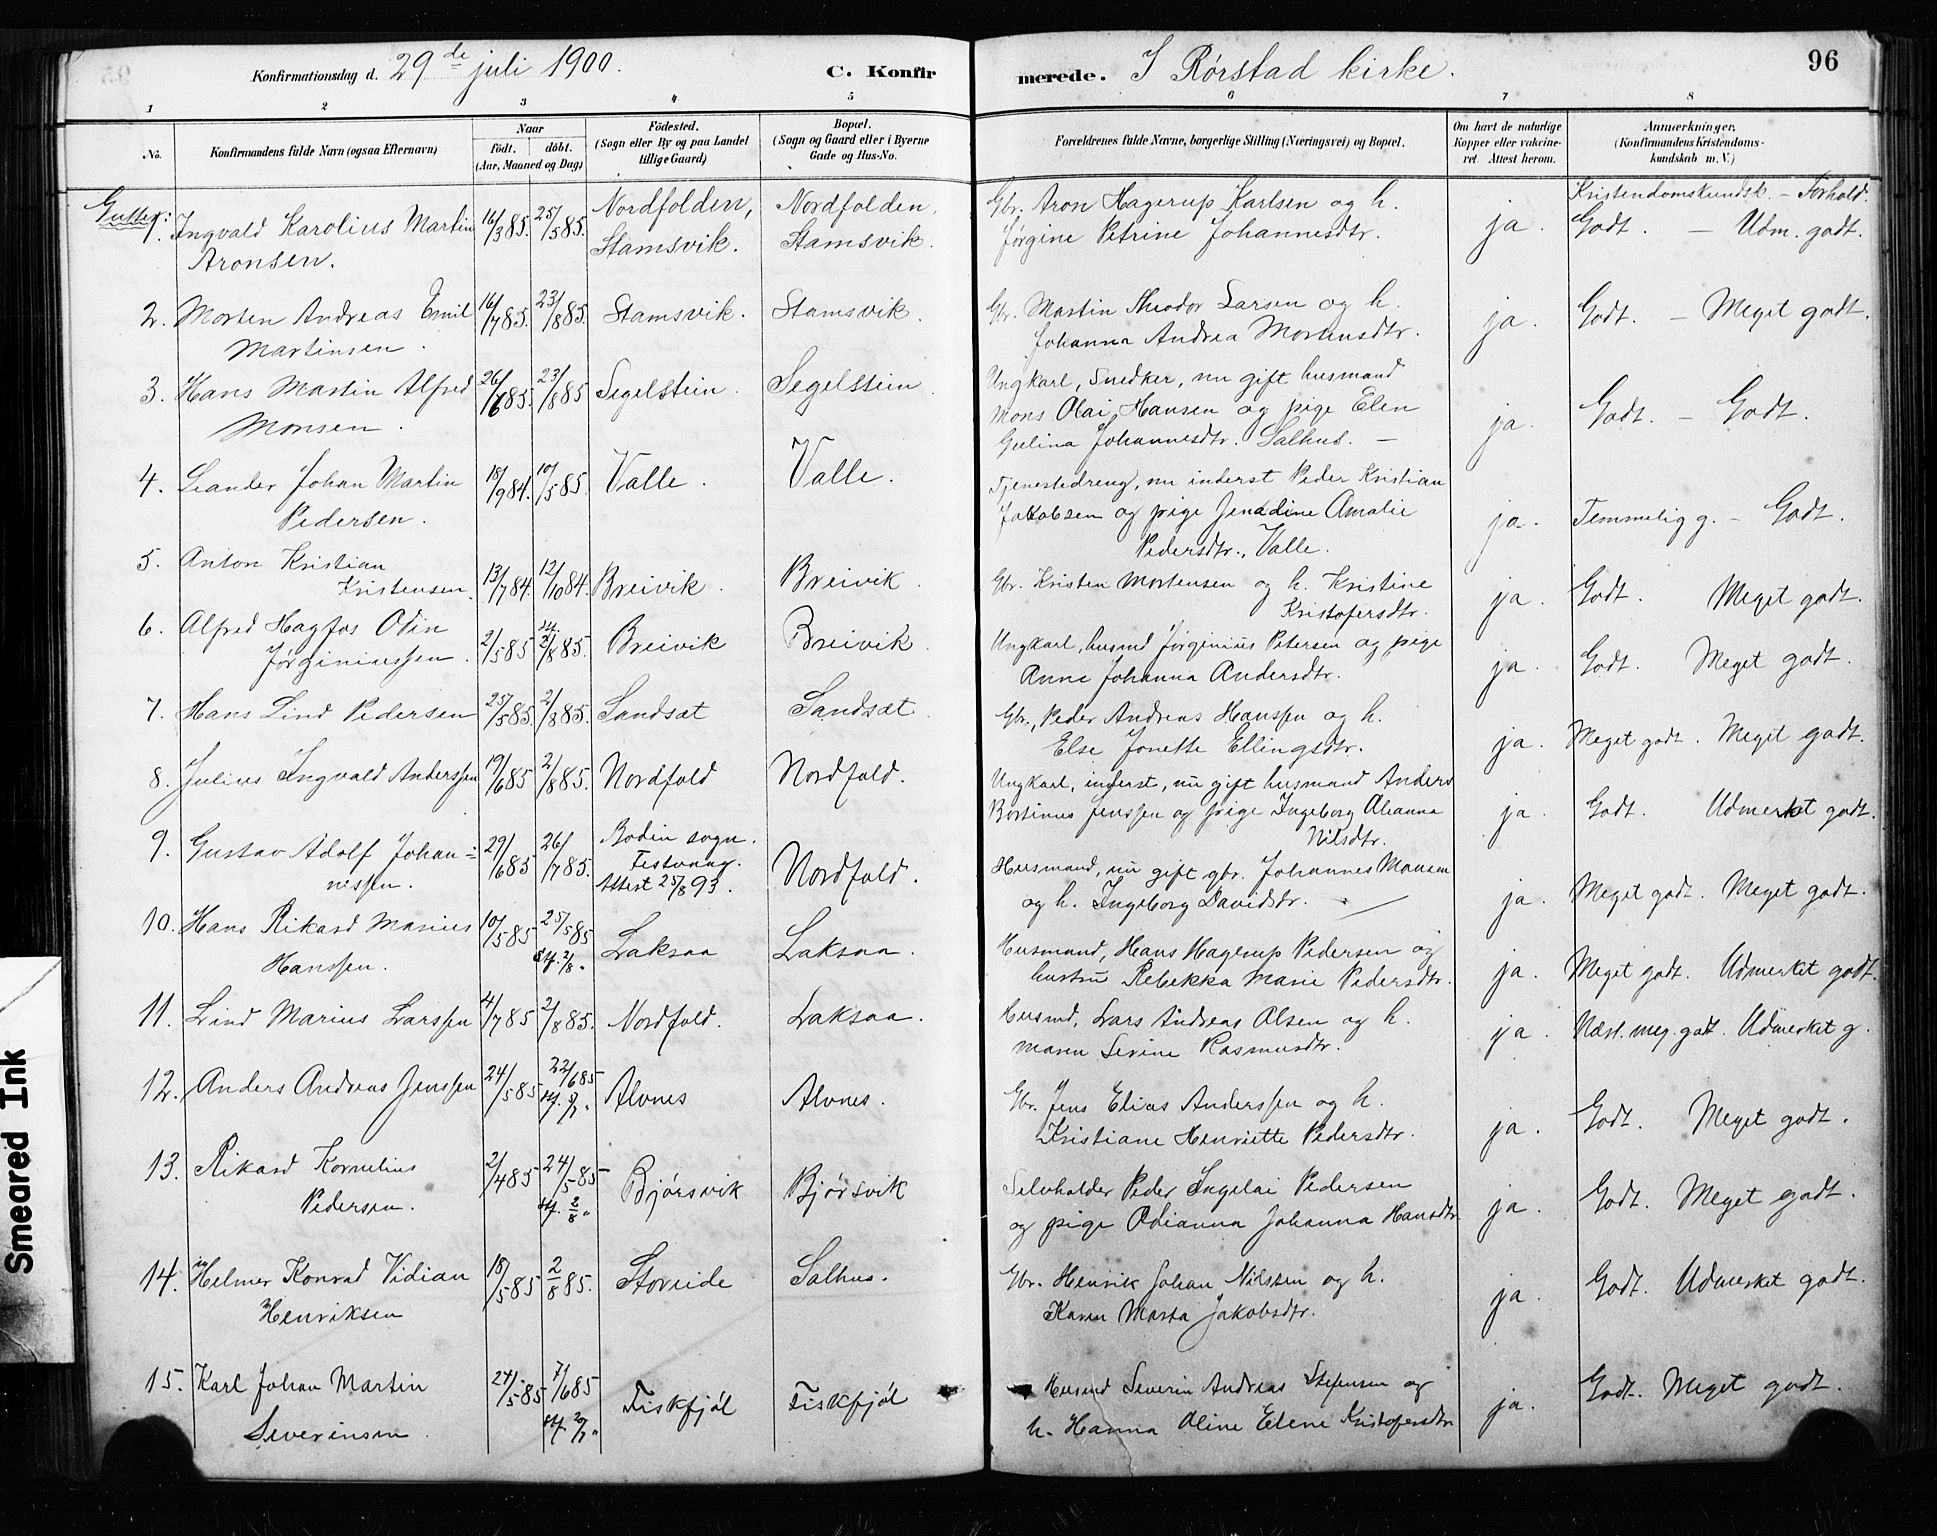 Konfirmationsdag d. 29de juli 1900. C. Konfirmerede. I Rørstad kirke. 96
1 2 3 4 5 6 7 8
No.
Konfirmandens fulde Navn (ogsaa Efternavn)
Naar
Födt. döbt.
(Aar, Maaned og Dag)
Födested.
(Sogn eller By og paa Landet
tillige Gaard)
Bopæl.
(Sogn og Gaard eller i Byerne
Gade og Hus-No.
Forældrenes fulde Navne, borgerlige Stilling (Næringsvei) og Bopæl.
Om havt de naturlige
Kopper eller vakcine-
ret. Attest herom.
Anmærkninger,
(Konfirmandens Kristendoms-
kundskab m. V.)
Gutter:
Kristendomskundsk. – Forhold.
1. Ingvald Karolius Martin 16/3 85. 25/5 85. Nordfolden, Nordfolden. Gbr. Aron Hagerup Karlsen og h. ja. Godt. – Udm. godt.
Aronsen. Stamsvik. Stamsvik. Jørgine Petrine Johannesdtr.
2. Morten Andreas Emil 16/7 85. 23/8 85. Stamsvik. Stamsvik. Gbr. Martin Theodor Larsen og h. ja. Godt. – Meget godt.
Martinsen. Johanna Andrea Mortensdtr.
3. Hans Martin Alfred 26/6 85. 23/8 85 Segelstein. Segelstein Ungkarl, Snedker, nu gift husmand
Monsen. Mons Olai Hansen og pige Elen ja. Godt. – Godt.
Gulina Johannesdtr. Salhus. –
4. Leander Johan Martin 18/9 84. 10/5 85. Valle. Valle. Tjenestedreng, nu inderst Peder Kristian
Pedersen. Jakobsen og pige Jenadine Amalie ja. Temmelig g. – Godt.
Pedersdtr., Valle.
5. Anton Kristian
Kristensen. 13/7 84. 12/10 84. Breivik. Breivik. Gbr. Kristen Mortensen og h. Kristine ja. Godt. Meget godt.
Kristofersdtr.
6. Alfred Hagfos Odin 2/5 85 2/8 85. Breivik Breivik. Ungkarl, husmd Jørginius Petersen og pige
Jørginiussen. Anne Johanna Andersdtr. ja. Godt. Meget godt.
7. Hans Lind Pedersen 25/5 85. 2/8 85. Sandsæt Sandsæt. Gbr., Peder Andreas Hanssen og h.
Else Jonette Ellingsdtr. ja. Meget godt. Meget godt.
8. Julius Ingvald Anderssen 19/6 85 2/8 85. Nordfold Nordfold. Ungkarl, inderst, nu gift husmand Anders
Bortinus Jenssen og pige Ingeborg Oleanna ja. Godt. Udmerket godt.
Nilsdtr.
9. Gustav Adolf Johan- 29/6 85 26/7 85. Bodin sogn. Nordfold. Husmand, nu gift gbr. Johannes Monsen
nessen. Festvaag. og h. Ingeborg Davidsdtr. ja. Meget godt. Meget godt.
Attest 25/8 93.
10. Hans Rikard Marius 10/5 85 25/5 85 Laksaa Laksaa. Husmand, Hans Hagerup Pedersen og
Hanssen. st. 2/8 " hustru Rebekka Marie Pedersdtr. ja. Meget godt. Udmerket godt.
11. Lind Marius Larssen 4/7 85 2/8 85. Nordfold. Laksaa. Husmd, Lars Andreas Olsen og h. ja. Næst. meg. godt. Udmerket g.
Maren Serine Rasmusdtr.
12. Anders Andreas Jenssen 24/5 85 22/6 85 Alvnes Alvnes. Gbr. Jens Elias Anderssen og h.
Kristiane Henriette Pedersdtr. ja. Godt. Meget godt.
13. Rikard Kornelius 2/4 85 24/5 85 Bjørsvik Bjørsvik Selvholder Peder Ingelai Pedersen
Pedersen. st. 2/8 " og pige Odianna Johanna Hansdtr ja. Godt. Meget godt.
14. Hilmer Konrad Vidian 18/5 85 2/8 85. Storeide Salhus. Gbr. Henrik Johan Nilssen og h. ja. Godt. Udmerket godt.
Henriksen Karen Marta Jakobsdtr.
15. Karl Johan Martin 24/5 85 7/6 85 Fiskfjøl Fiskfjøl Husmd Severin Andreas Stefensen og ja. Godt. Meget godt.
Severinsen. h. Hanna Oline Elene Kristofersdtr
Smeared Ink